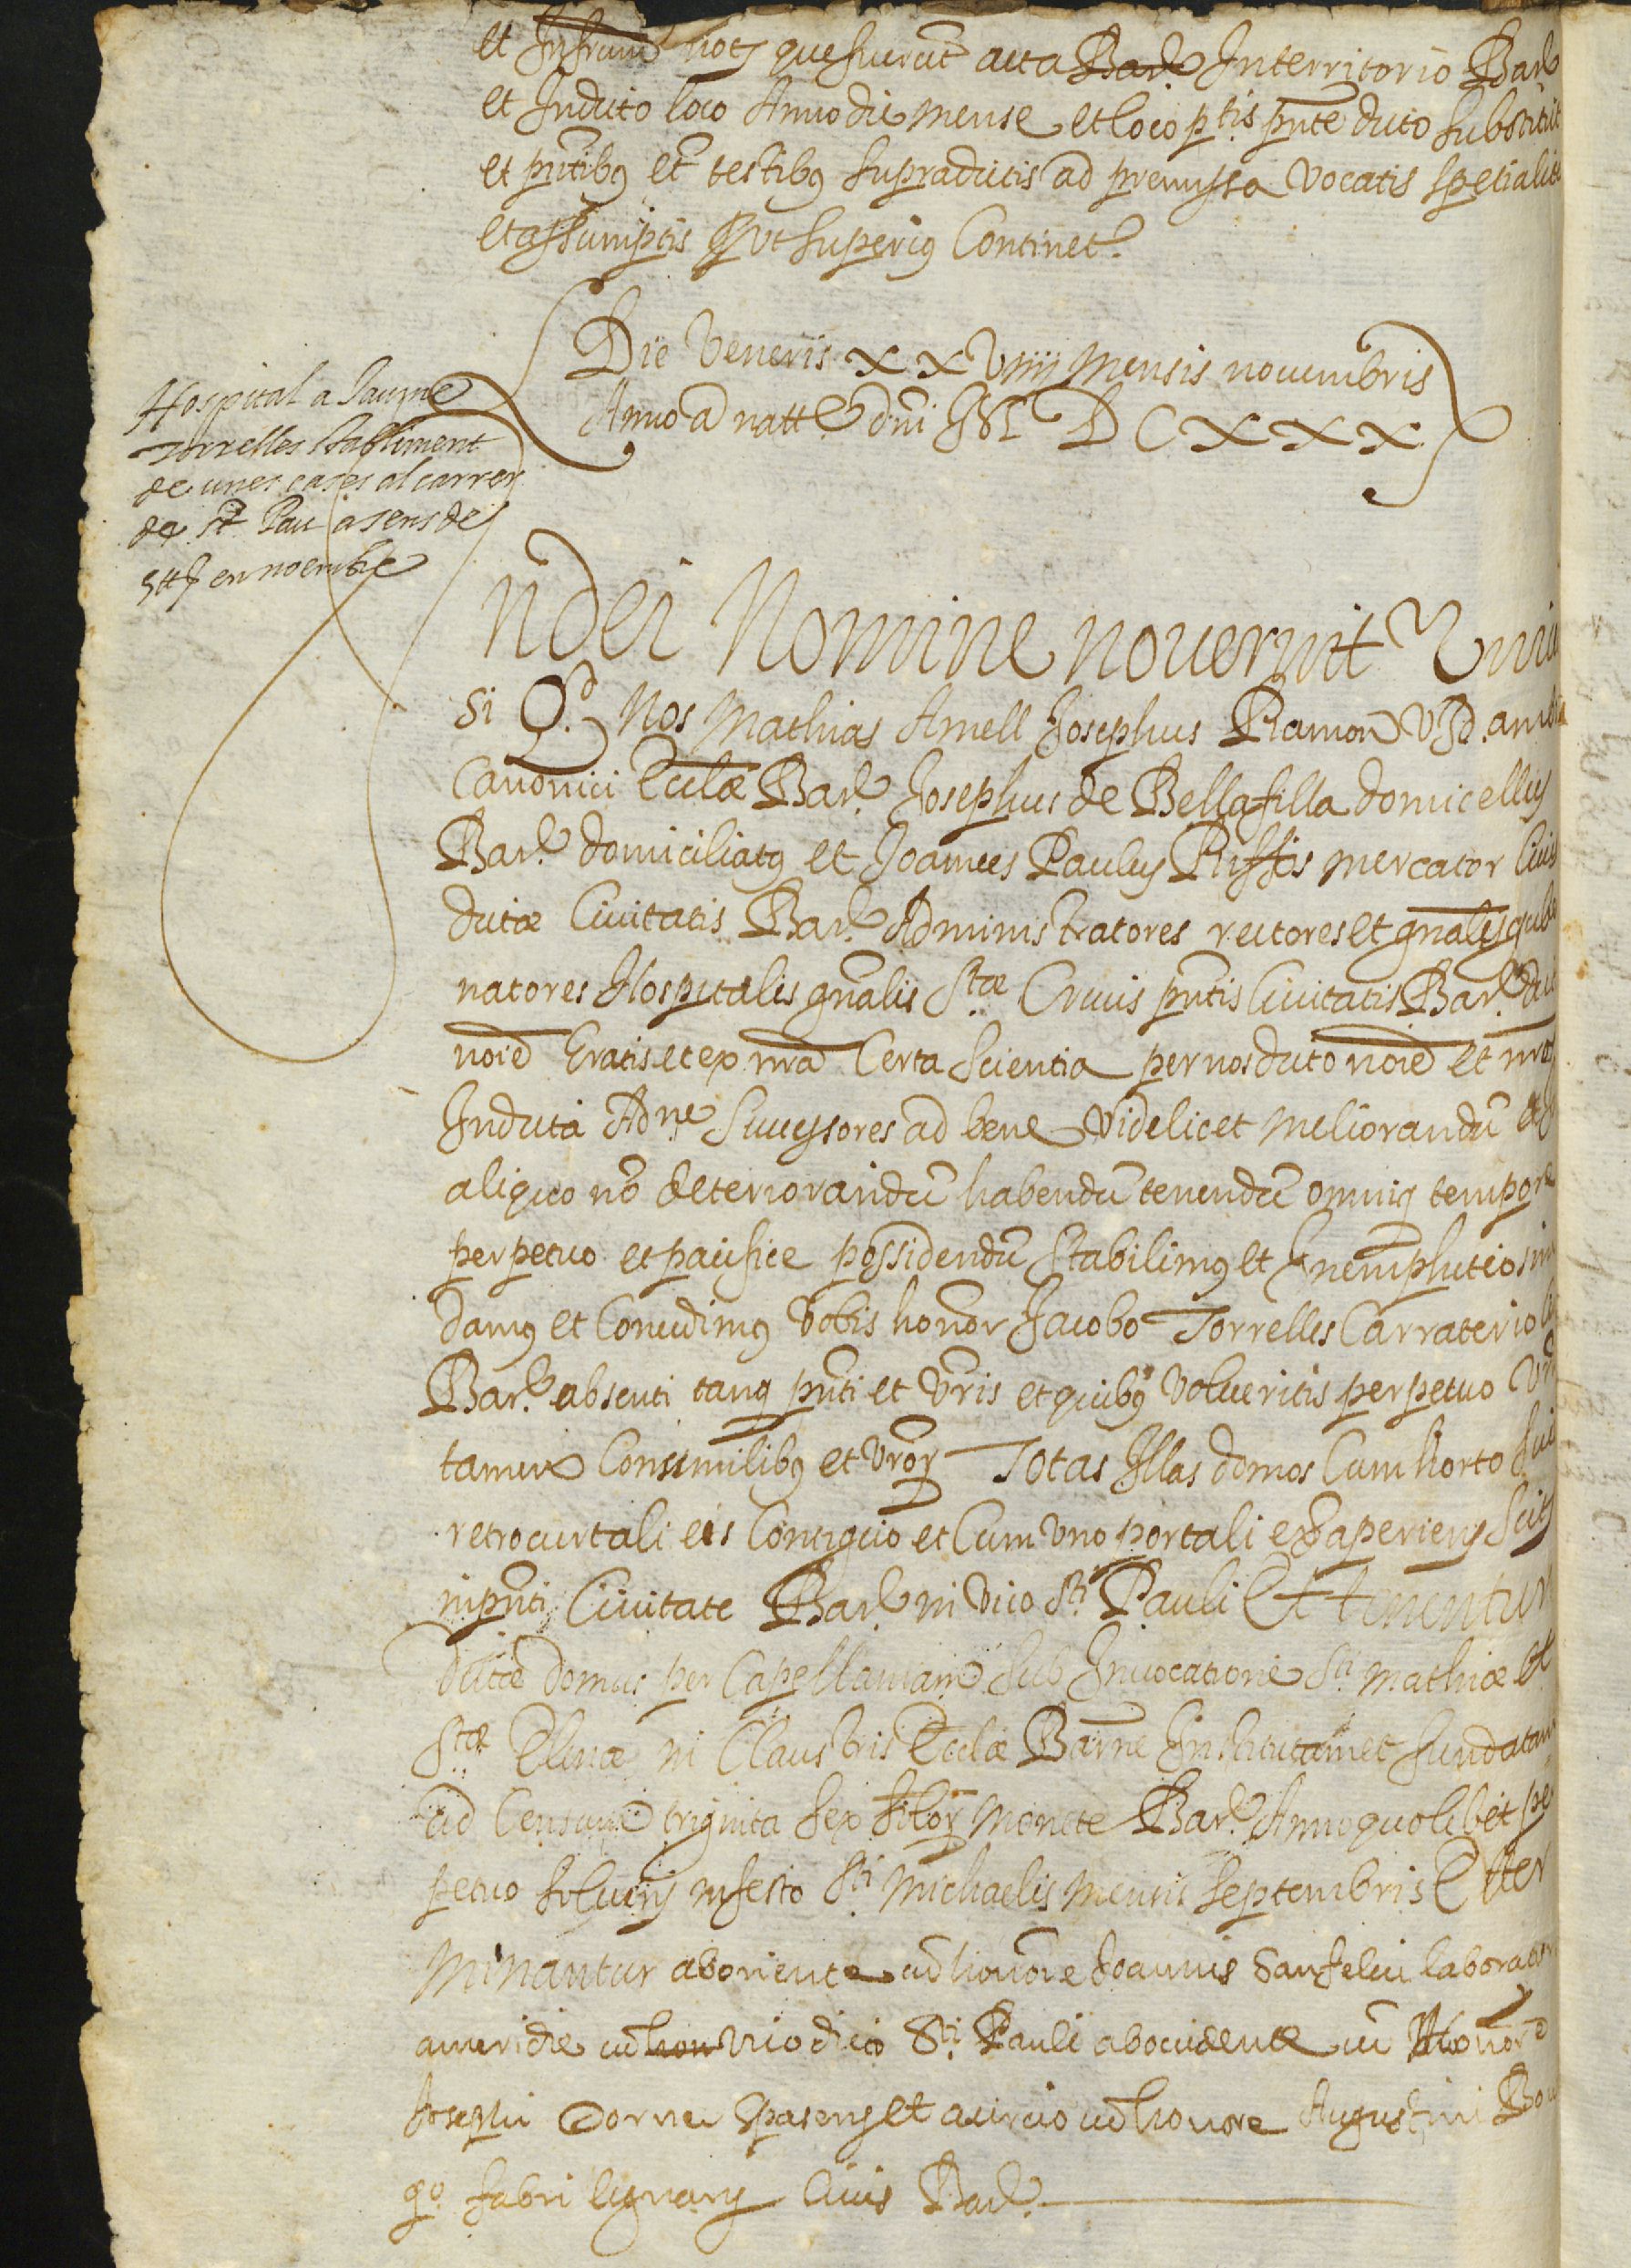 et Infrum nots que fuerūt acta Barl Interritorio Barl
et Indicto loco Anno die mense et loco ptis pnte dicto substituit
et pntibꝰ et testibꝰ supradictis ad premissa vocatis spetialit
et assumptis Put superiꝰ Continet.
Die Veneris XXVIIII mensis nouembris
Anno a natte dni M D C X X X
Hospital a Jaume
Torrelles stabliment
de unes cases al carrer
de St Pau a sens de
en noembre
n dei Nomine nouerint Vniu
si Qd Nos Mathias Amell Josephus Ramon VJd. ambo
Canonici Eccłæ Barl Josephus de Bellafilla domicellus
Barl domiciliatꝰ et Joannes Paulus Riffos mercator Ciuis
dictæ Ciuitatis Barl Administratores rectores et gnales gube
natores Hospitalis gnalis Stæ Crucis pntis Ciuitatis Barl dict
noie Gratis et ex nra Certa scientia per nos dicto noie et nros
Indicta Adne Successores ad bene videlicet meliorandū et
aliquo nō deteriorandū habendū tenendū omniq tempore
perpetuo et pacifice possidendū Stabilimꝰ et Inemphiteosim
damꝰ et Concedimꝰ vobis honor Jacobo Torrelles Carraterio
Barl absenti tanq pnti et vris et quibꝰ volueritis perpetuo
tamen Consimilibꝰ et vror Totas Illas domos Cum horto siu
retrocurtali eis Contiguo et Cum vno portali extra aperiens scits
in pnti Ciuitate Barl in vico Sti Pauli Et tenentur
dictæ domus per Capellaniam sub Inuocatione Sti Mathiæ et
Stæ Elenæ in Claustris Ecclæ Barne Institutam et fundatam
ad Censum triginta sex solor monete Barl Anno quolibet per
petuo soluens in festo Sti Michaelis mensis septembris Et ter
minantur ab oriente cū honore Joannis Sanfeliu laborator
a meridie cū hon vico dicto Sti Pauli ab occidente cū Honore
Josephi Corner Spasers et a circio cū honore Augustini Bou
go fabri lignarij Ciuis Barl